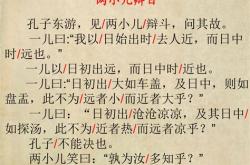 两小儿辩日
孔子东游，见/两小儿/辩斗，问其故。
一儿曰:"我以/日始出时/去人近，而日中时/远也。"
一儿以/日初出远，而日中时/近也。
一儿曰:"日初出/大如车盖，及日中，则如盘盂，此不为/远者小/而近者大乎？"
一儿曰：“日初出/沧沧凉凉，及其日中/如探汤，此不为/近者热/而远者凉乎？”
孔子/不能决也。
两小儿笑曰:"孰为汝/多知乎？